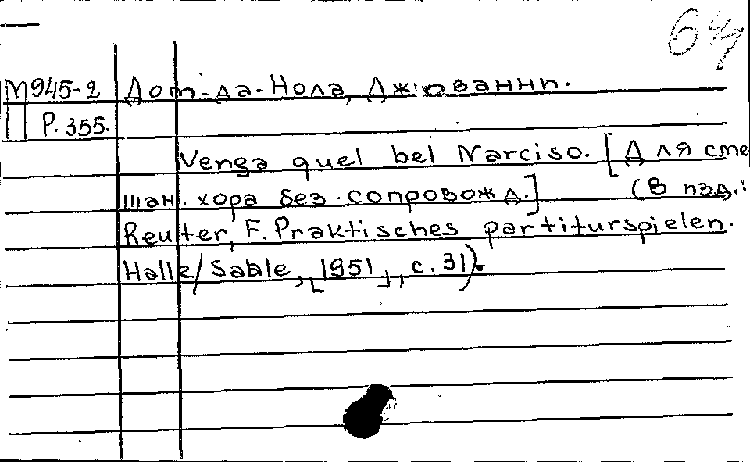 М945-2 Дом-да-Нола, Джованни.
Р. 355.
Venga quel bel Narciso. [Для сме
шан. хора без сопровожд.] (В изд.:
Reuter, F. Praktisches partiturspielen.
Halle/Sable, [1951], с. 31).